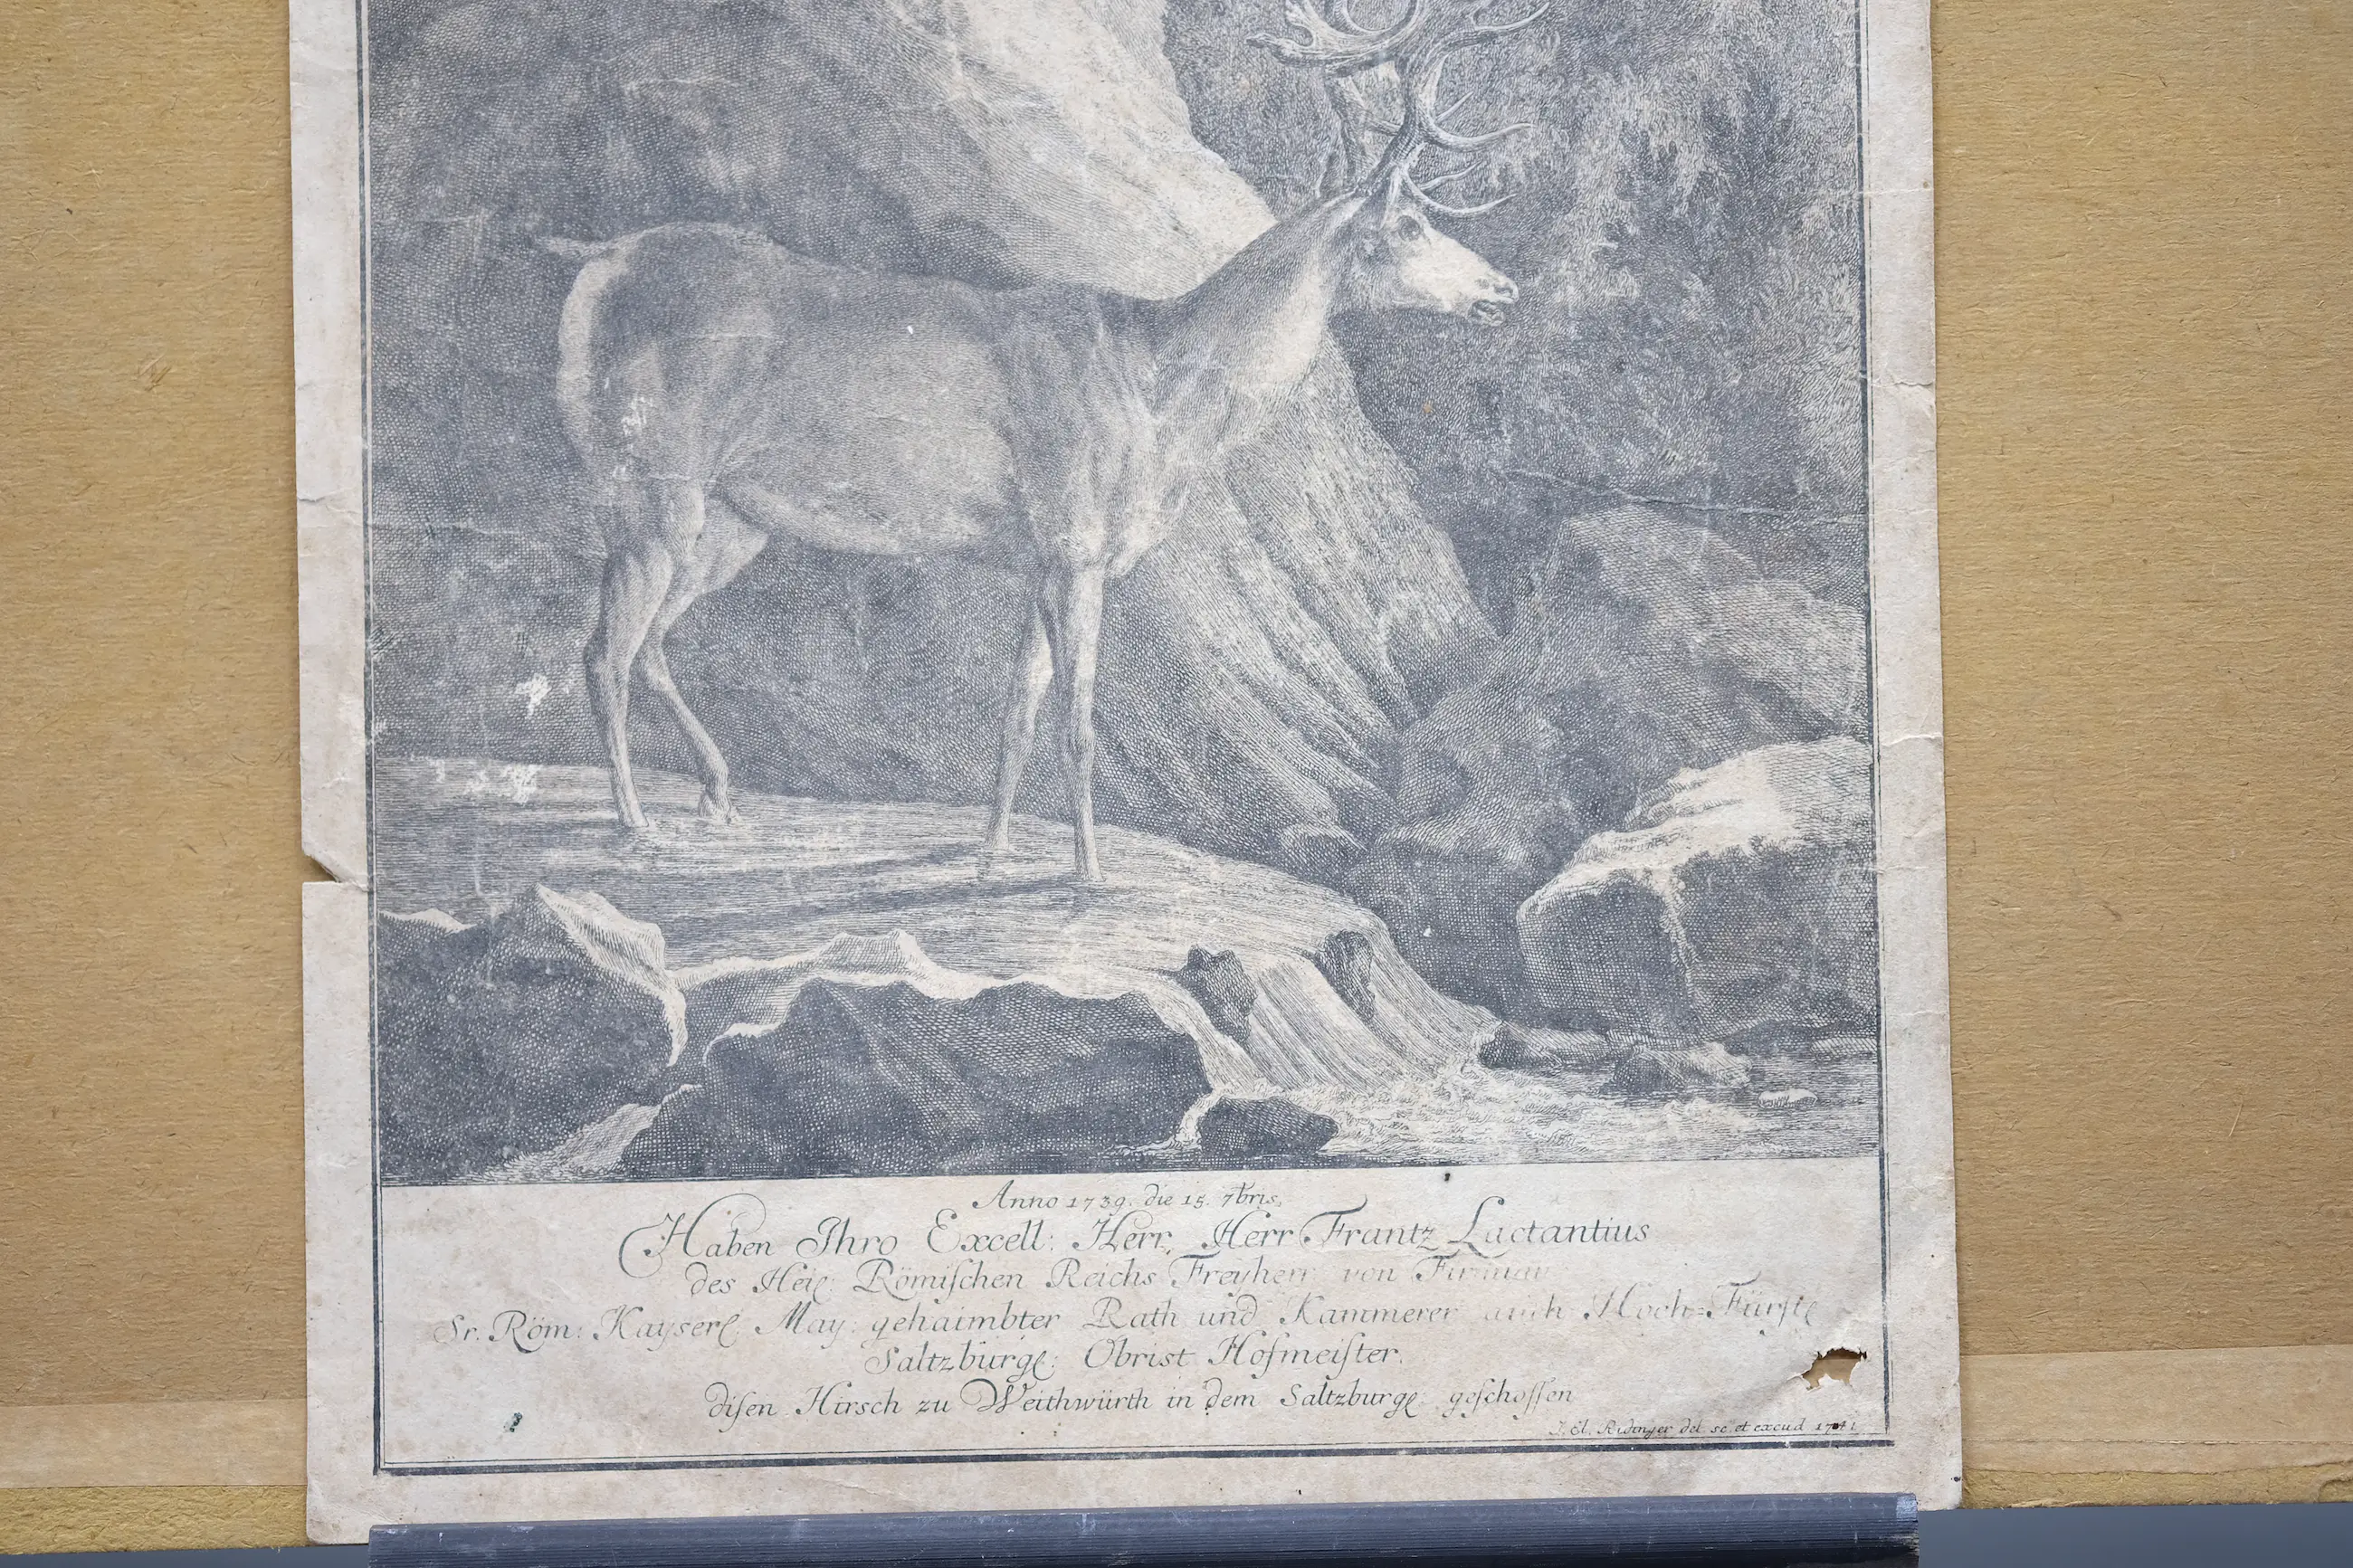 Anno 1739. die 15. 7bris.
Haben Ihro Excell: Herr, Herr Frantz Lactantius
des Heil: Römiſchen Reichs Freyherr von Firmian
Sr. Röm: Kayserl: May: gehaimbter Rath und Kammerer auch Hoch=Fürſtl
Saltzbürgl: Obrist Hofmeiſter.
diſen Hirsch zu Weithwürth in dem Saltzburgl: geſchoſſen
J. El. Ridinger del. sc. et excud. 1741.